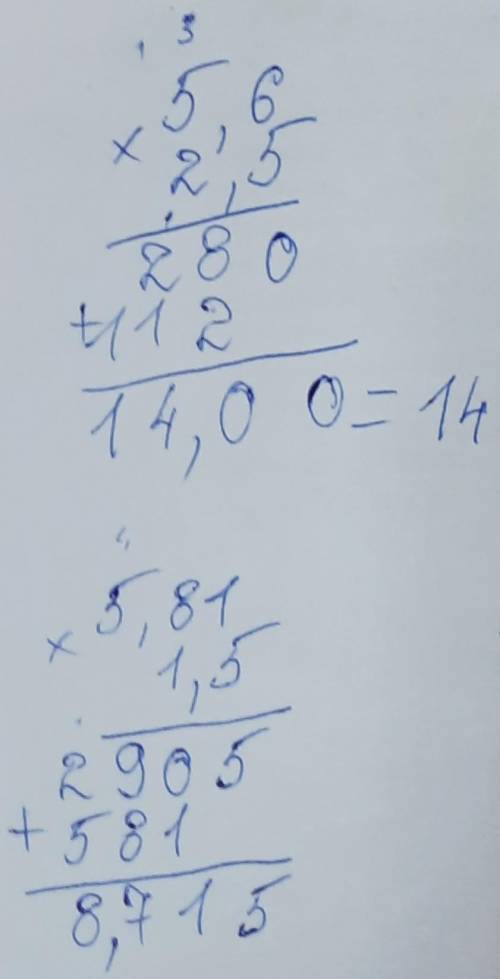 3
5,6
× 2,5
280
+112
14,00=14
5,81
× 1,5
2905
+581
8,715